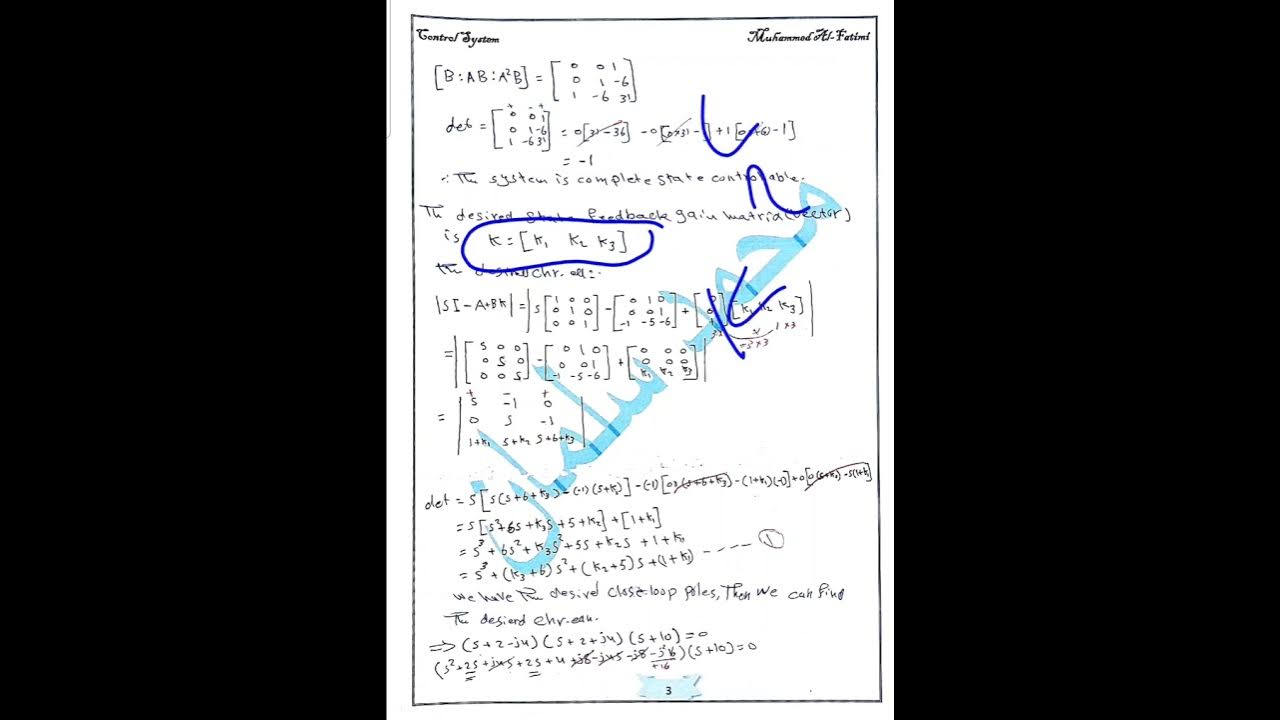 Control System
Muhammed Al-Fatimi
[B : AB : A²B] = [0 0 1
0 1 -6
1 -6 31]
+ - +
det = [0 0 1
0 1 -6
1 -6 31] = 0[31-36] -0[0*31-] +1[0*(-6)-1]
= -1
∴ The system is complete state controllable.
The desired state feedback gain matrix (vector)
is K = [K₁ K₂ K₃]
the desired chr. eq:-
|SI - A+BK| = |S [1 0 0
0 1 0
0 0 1] - [0 1 0
0 0 1
-1 -5 -6] + [0
0
1] [K₁ K₂ K₃]|
3*1 * 1*3
=3*3
= |[S 0 0
0 S 0
0 0 S] - [0 1 0
0 0 1
-1 -5 -6] + [0 0 0
0 0 0
K₁ K₂ K₃]|
+ - +
= |S -1 0
0 S -1
1+K₁ 5+K₂ S+6+K₃|
det = S[S(S+6+K₃) - (-1)(5+K₂)] - (-1)[0*(S+6+K₃) - (1+K₁)(-1)] + 0[0(5+K₂) - S(1+K₁)]
= S[S²+6S+K₃S+5+K₂] + [1+K₁]
= S³ + 6S² + K₃S² + 5S + K₂S + 1 + K₁
= S³ + (K₃+6)S² + (K₂+5)S + (1+K₁) ------ ①
We have the desired close-loop poles, Then We can find
The desierd chr. equ.
=> (S+2-j4) (S+2+j4) (S+10) = 0
(S²+2S+j4S+2S+4+j8-j4S-j8-j²16)(S+10)=0
+16
محمد سلمان
3